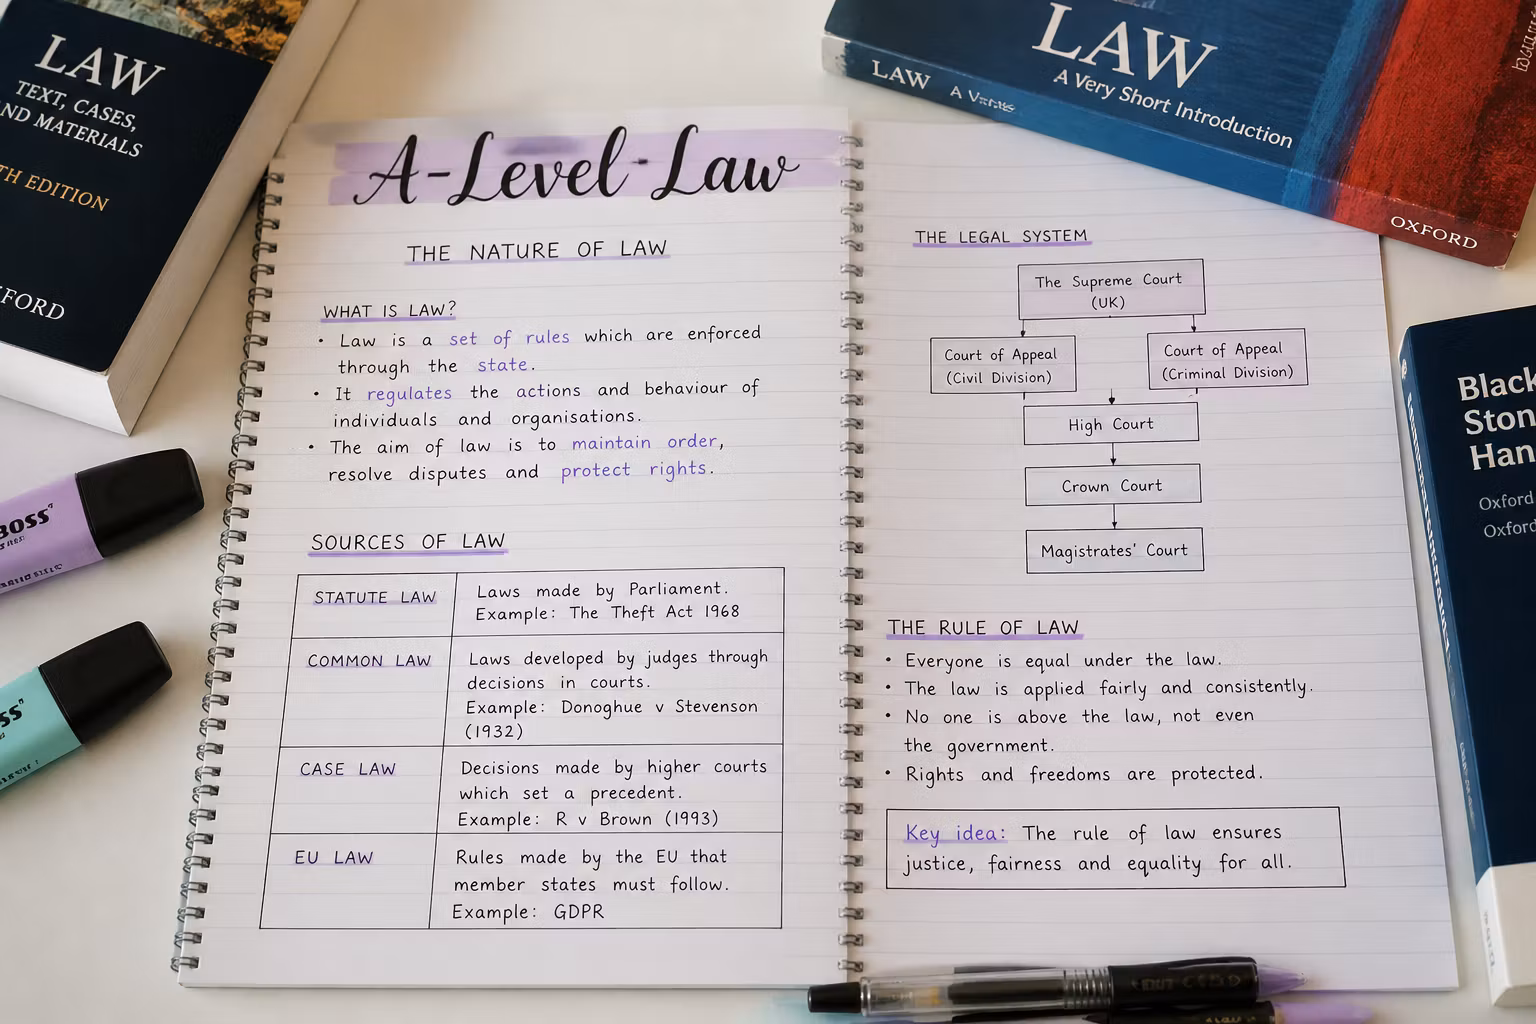 LAW
TEXT, CASES,
AND MATERIALS
TH EDITION
FORD
LAW
A Very Short Introduction
LAW
OXFORD
A-Level Law
THE NATURE OF LAW
WHAT IS LAW?
• Law is a set of rules which are enforced
through the state.
• It regulates the actions and behaviour of
individuals and organisations.
• The aim of law is to maintain order,
resolve disputes and protect rights.
SOURCES OF LAW
STATUTE LAW
Laws made by Parliament.
Example: The Theft Act 1968
COMMON LAW
Laws developed by judges through
decisions in courts.
Example: Donoghue v Stevenson
(1932)
CASE LAW
Decisions made by higher courts
which set a precedent.
Example: R v Brown (1993)
EU LAW
Rules made by the EU that
member states must follow.
Example: GDPR
THE LEGAL SYSTEM
The Supreme Court
(UK)
Court of Appeal
(Civil Division)
Court of Appeal
(Criminal Division)
High Court
Crown Court
Magistrates' Court
THE RULE OF LAW
• Everyone is equal under the law.
• The law is applied fairly and consistently.
• No one is above the law, not even
the government.
• Rights and freedoms are protected.
Key idea: The rule of law ensures
justice, fairness and equality for all.
Black
Ston
Han
Oxford
Oxford
BOSS